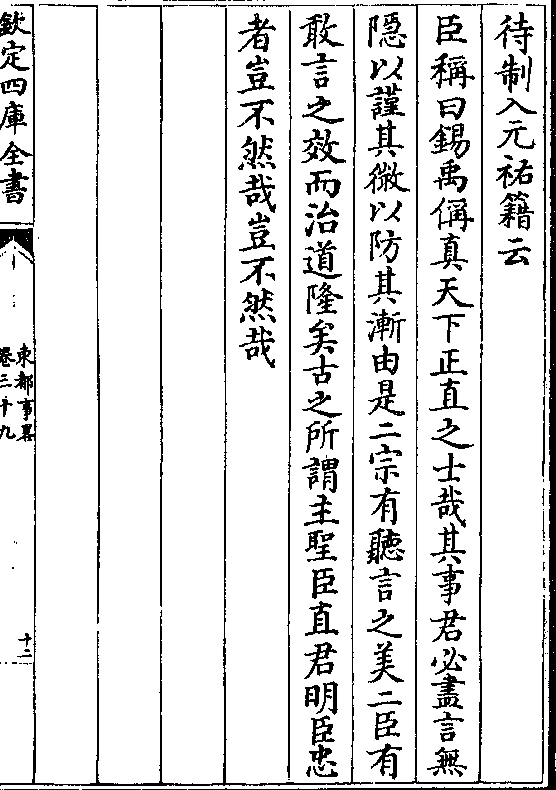 待制入元祐籍云
臣稱曰錫禹偁真天下正直之士哉其事君必盡言無
隠以謹其微以防其漸由是二宗有聽言之美二臣有
敢言之效而治道隆矣古之所謂主聖臣直君明臣忠
者豈不然哉豈不然哉
欽定四庫全書
東都事畧
卷三十九
十二